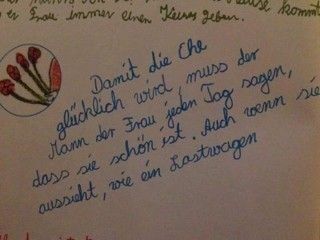 er Frau immer einen Keurs geben.
Damit die Ehe
glücklich wird, muss der
Mann der Frau jeden Tag sagen,
dass sie schön ist. Auch wenn sie
aussieht, wie ein Lastwagen